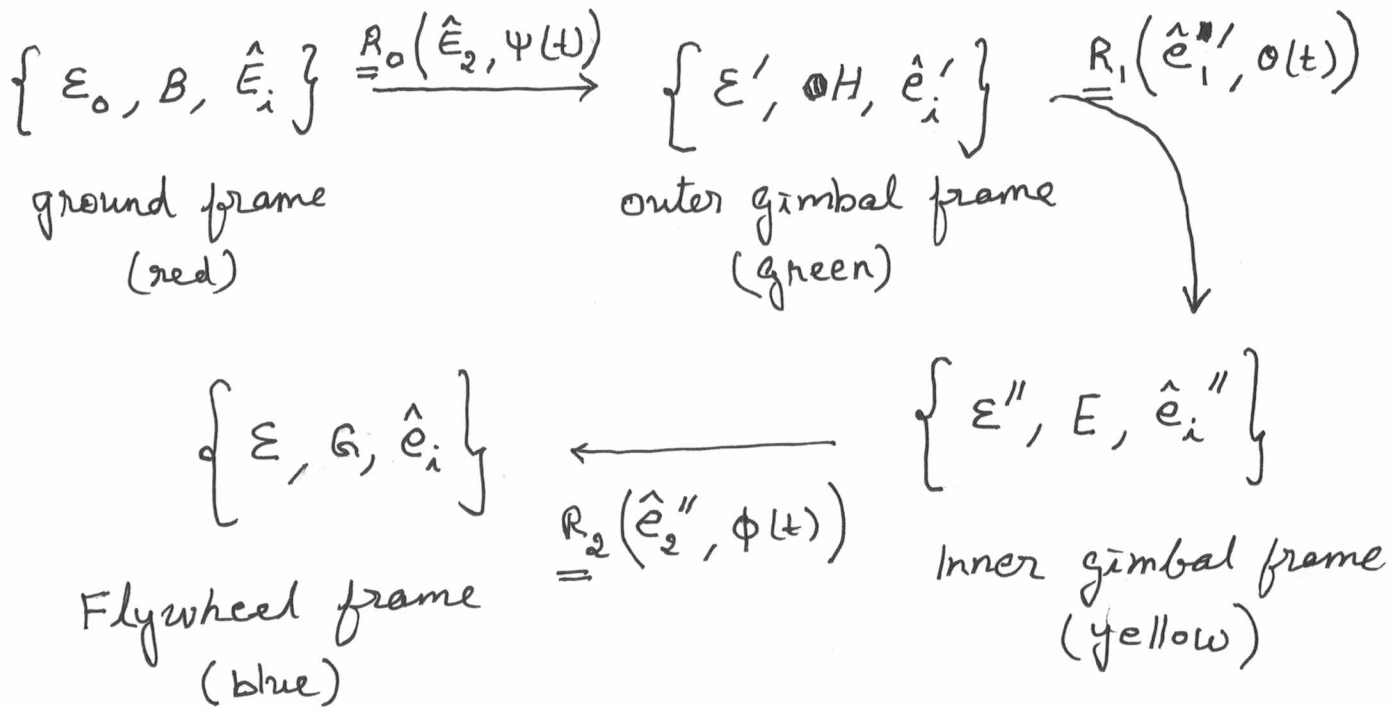 { ℰ₀, B, Ê_i } R₀(Ê₂, ψ(t)) { ℰ′, H, ê_i′ } R₁(ê₁′, θ(t))
ground frame
(red)
outer gimbal frame
(green)
{ ℰ, G, ê_i } R₂(ê₂″, φ(t)) { ℰ″, E, ê_i″ }
Flywheel frame
(blue)
Inner gimbal frame
(yellow)